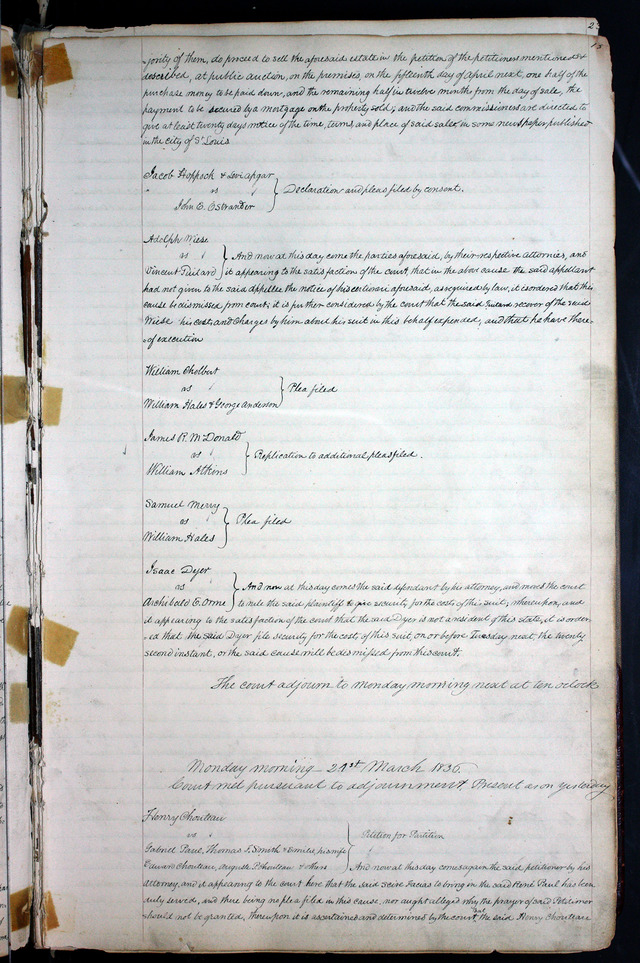 23
jority of them, do proceed to sell the aforesaid estate in the petition of the petitioners mentioned &
described, at public auction, on the premises, on the fifteenth day of April next, one half of the
purchase money to be paid down, and the remaining half in twelve months from the day of sale, the
payment to be secured by a mortgage on the property sold; and the said commissioners are directed to
give at least twenty days notice of the time, terms, and place of said sales in some newspaper published
in the city of St Louis
Jacob Hoppoch & Levi Apgar
vs
John E. Ostrander
Declaration and pleas filed by consent.
Adolph Wiese
vs
Vincent Guitard
And now at this day come the parties aforesaid, by their respective attornies, and
it appearing to the satisfaction of the court, that in the above cause the said appellant
had not given to the said appellee the notice of his certiorari aforesaid, as required by law, it is ordered that this
cause be dismissed from court; it is further considered by the court that the said Guitard recover of the said
Wiese his costs and charges by him about his suit in this behalf expended, and that he have there-
of execution
William Cholbut
vs
William Hales & George Anderson
Plea filed
James R. McDonald
vs
William Atkins
Replication to additional pleas filed.
Samuel Merry
vs
William Hales
Plea filed
Isaac Dyer
vs
Archibald E. Orme
And now at this day comes the said defendant by his attorney, and moves the court
to rule the said plaintiff to give security for the costs of this suit; whereupon, and
it appearing to the satisfaction of the court that the said Dyer is not a resident of this state, it is order-
ed that the said Dyer file security for the costs of this suit, on or before Tuesday next, the twenty
second instant, or the said cause will be dismissed from this court.
The court adjourn to Monday morning next at ten oclock
Monday morning 21st March 1836.
Court met pursuant to adjournment. Present as on yesterday
Henry Chouteau
vs
Gabriel Paul, Thomas F. Smith & Emilie his wife
Edward Chouteau, Auguste P. Chouteau & others
Petition for Partition
And now at this day comes again the said petitioner by his
attorney, and it appearing to the court here that the said scire facias to bring in the said René Paul has been
duly served, and there being no plea filed in this cause, nor aught alleged why the prayer of said Petitioner
should not be granted, thereupon it is ascertained and determined by the court, that the said Henry Chouteau